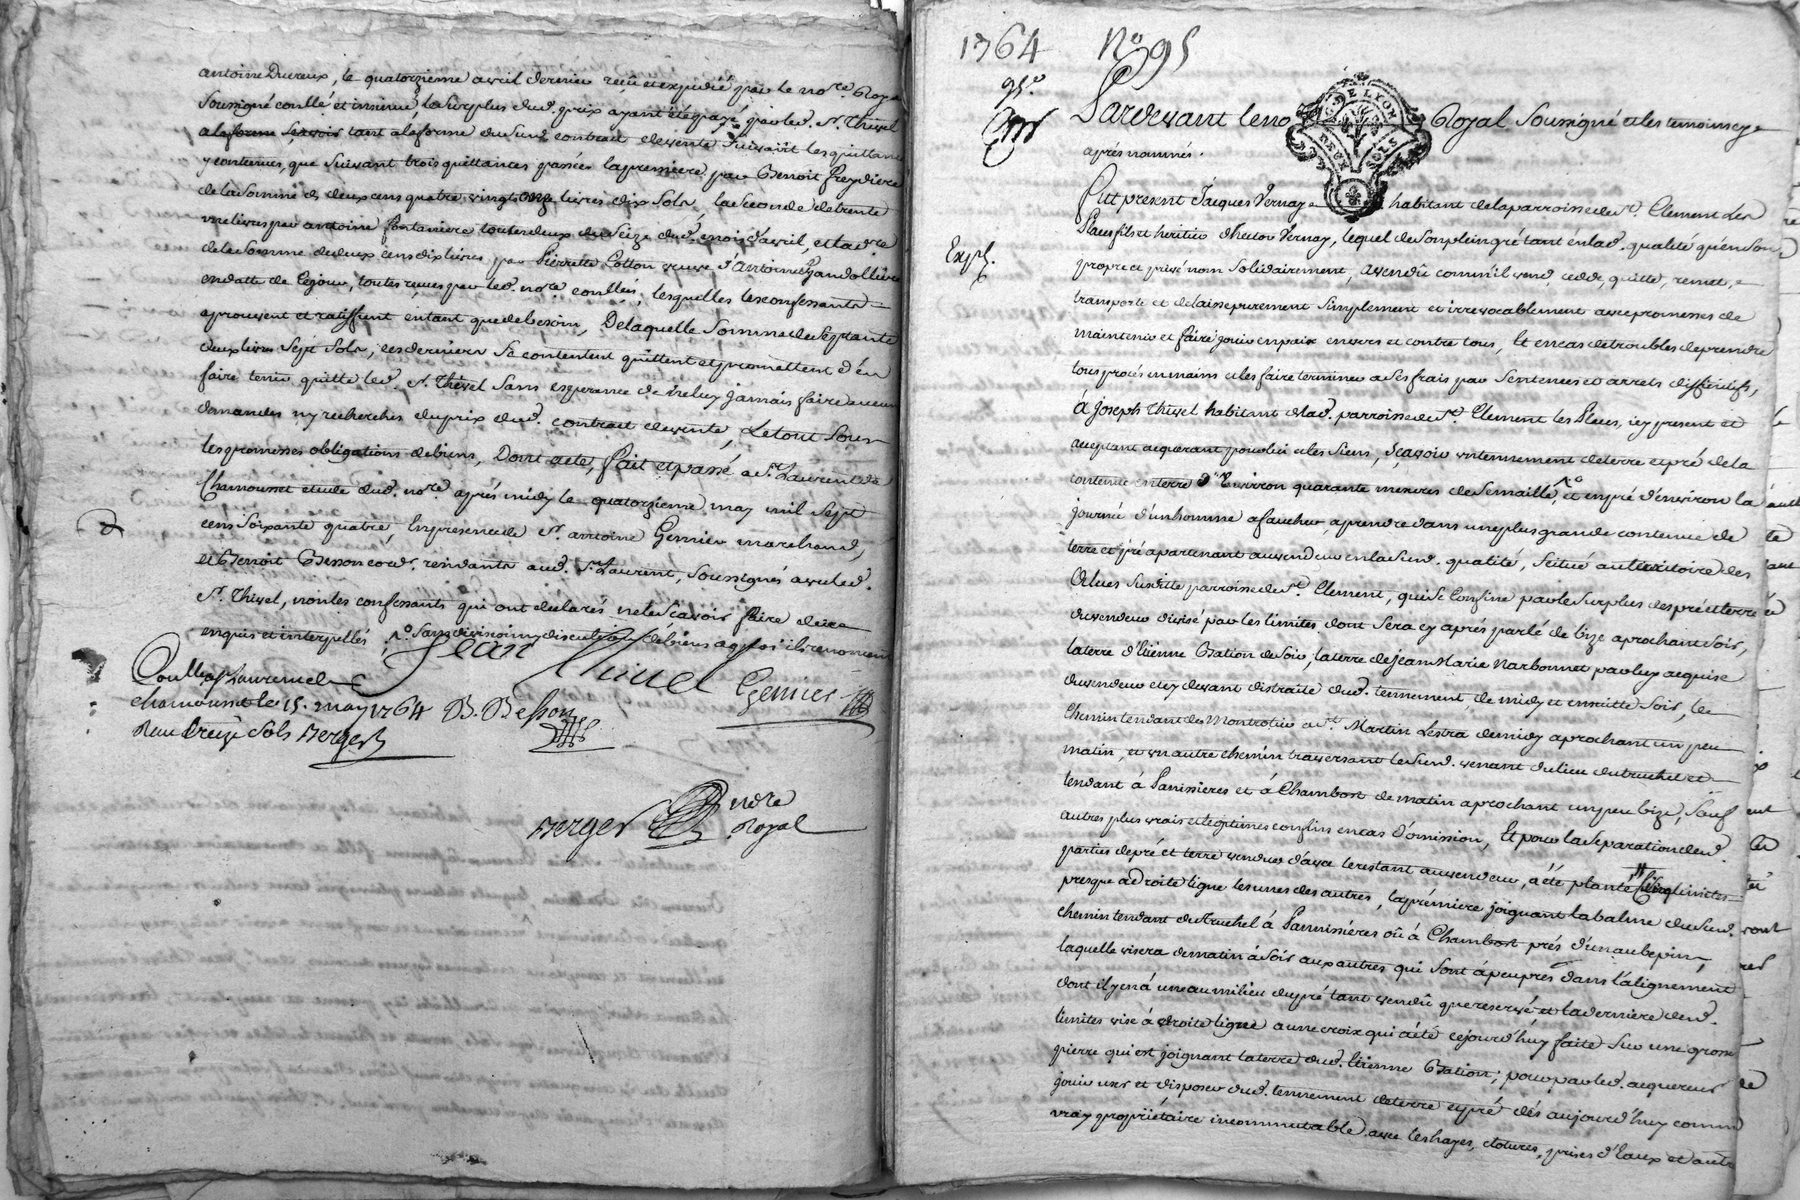 antoine Ducreux, le quatorzieme avril dernier reçû et expedié par le nore. Royal
soussigné conllé et insinué, le surplus dud. prix ayant été payé par led. Sr. Thivel
a la forme sçavoir tant a la forme du susd. contrat de vente suivant les quittances
y contenues, que suivant trois quittances passées la premiere par Benoit Preydiere
de la somme de deux cens quatre vingt onze livres dix sols, la seconde de trente
une livres par antoine fontaniere toutes deux du seize dud. mois d'avril, et la dre
de la somme de deux cens dix livres par Pierrette Cotton veuve d'antoine
en datte de ce jour, toutes reçues par led. nore. conllées, lesquelles les confessants
aprouvent et ratiffient en tant que de besoin, De laquelle somme de septante
deux livres sept sols, ces derniers se contentent quittent et promettent d'en
faire tenir quitte led. Sr. Thivel sans esperance de n'en luy jamais faire aucune
demandes ny recherches du prix dud. contrat de vente, Le tout sous
les promesses obligations de biens, Dont acte, fait et passé a St. Laurent de
Chamousset etude dud. nore. après midy le quatorzieme may mil sept
cens soixante quatre, En presence de Sr. antoine Gernier marchand,
et Benoit Besson cord. residants aud. St. Laurent, soussignés avec led.
Sr. Thivel, non les confessants qui ont declarés ne le sçavoir faire de ce
enquis et interpellés
Jean Thivel
Gernier
Conllé a St Laurent de
chamousset le 15. may 1764
Reçu treize sols Berger
B. Besson
Berger nore
Royal
1764 No 95
95e
Pardevant le no Royal soussigné et les temoins cy
après nommés.
GE. DE LYON
NEUF SOLS
Expé.
Fut present Jacques Vernay habitant de la parroisse de St. Clement Les
Places fils et heritier d'hector Vernay, lequel de son plein gré tant en lad. qualité qu'en son
propre et privé nom solidairement, a vendû comm'il vend, cedde, quitte, remet,
transporte et delaisse purement simplement et irrevocablement avec promesses de
maintenir et faire jouir en paix envers et contre tous, Et en cas de troubles de prendre
tous procés en mains et les faire terminer a ses frais par sentences et arrets diffinitifs,
à joseph Thivel habitant de lad. parroisse de St. Clement les Places, icy present et
acceptant acquerant pour lui et les siens, sçavoir un tennement de terre et pré de la
contenue en terre d'environ quarante mesures de semaille et en pré d'environ la
journée d'un homme a faucher, a prendre dans une plus grande contenue de
terre et pré apartenant au vendeur en lasusd. qualité, scitué au territoire des
susditte parroisse de St. Clement, qui se confine par le surplus des pré et terre
du vendeur divisé par les limites dont sera cy après parlé de bize aprochant soir,
la terre d'Etienne Bation de soir, la terre de jean Marie Narbonnet par luy acquise
du vendeur et cy devant distraite dud. tennement, de midy et ensuitte soir, le
Chemin tendant de Montrotier a St. Martin Lestra de midy aprochant un peu
matin, et un autre chemin traversant le susd. venant du lieu du truchet et
tendant à Panissieres et à Chambost de matin aprochant un peu bize, Sauf
autres plus vrais et legitimes confins en cas d'omission, Et pour la separation desd.
parties de pré et terre vendues d'avec le restant au vendeur, a été planté limites
presque a droite ligne les unes des autres, la premiere joignant la balme du susd.
chemin tendant du truchet à Pannissières où à Chambost près d'un aubepin,
laquelle visera de matin à soir aux autres qui sont à peu prés dans l'alignement
dont il y en à une au milieu du pré tant vendû que reservé et la derniere desd.
limites vise à droite ligne a une croix qui a été cejourd'huy faite sur une grosse
pierre qui est joignant la terre dud. Etienne Bation; pour par led. acquereur
jouir user et disposer dud. tennement de terre et pré dès aujourd'huy comme
vray propriétaire incommutable avec les hayes, clotures, prises d'eaux et autre